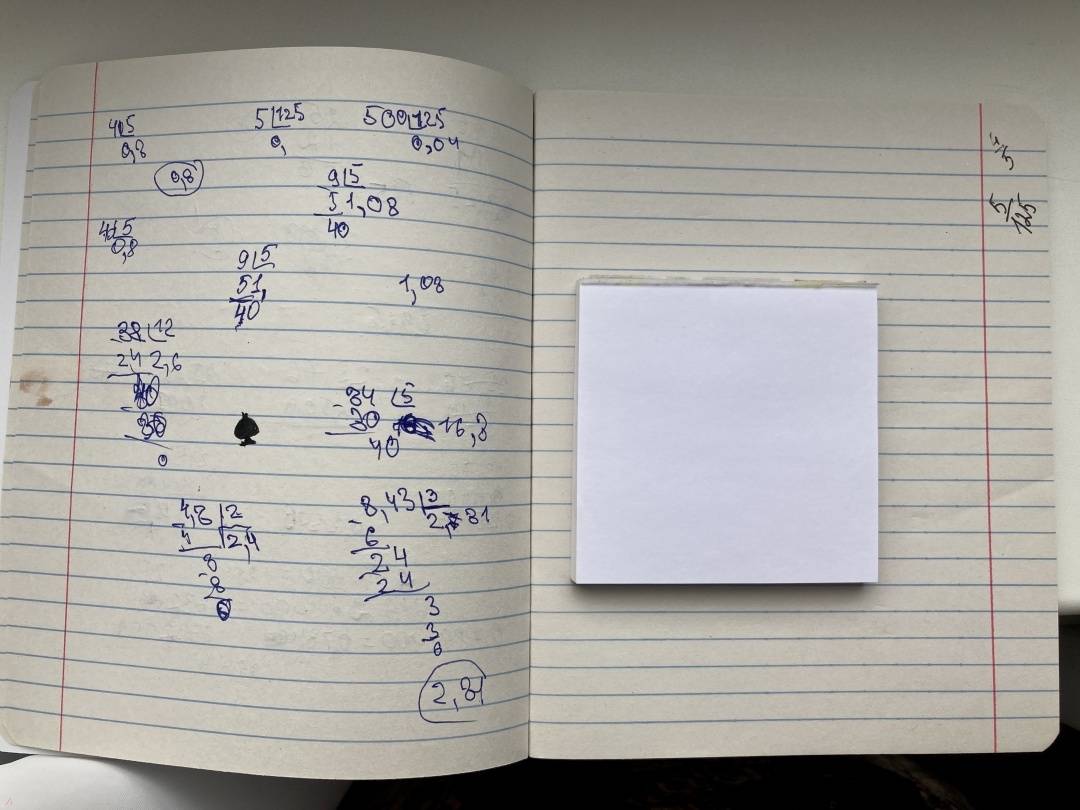 4 5
0,8
5 125
0,
500 125
0,04
0,8
9 5
5 1,08
40
4 5
0,8
9 5
5 1,
40
1,08
38 12
24 2,6
0
84 5
30 16,8
40
4,8 2
4 2,4
8
8
0
8,43 3
6 2,81
24
24
3
3
0
2,81
4/5
5/125